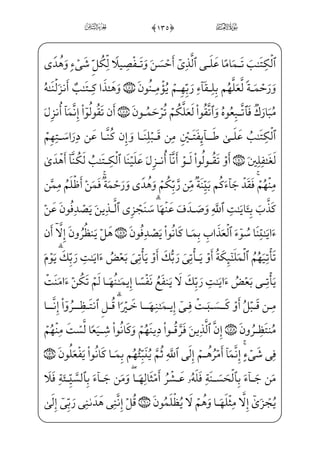 الجزء الثامن ﴿١٣٥﴾ سورة الأنعام
ٱلْكِتَٰبَ تَمَامًا عَلَى ٱلَّذِىٓ أَحْسَنَ وَتَفْصِيلًا لِّكُلِّ شَىْءٍ وَهُدًى
وَرَحْمَةً لَّعَلَّهُم بِلِقَآءِ رَبِّهِمْ يُؤْمِنُونَ ﴿١٥٤﴾ وَهَٰذَا كِتَٰبٌ أَنزَلْنَٰهُ
مُبَارَكٌ فَٱتَّبِعُوهُ وَٱتَّقُوا۟ لَعَلَّكُمْ تُرْحَمُونَ ﴿١٥٥﴾ أَن تَقُولُوٓا۟ إِنَّمَآ أُنزِلَ
ٱلْكِتَٰبُ عَلَىٰ طَآئِفَتَيْنِ مِن قَبْلِنَا وَإِن كُنَّا عَن دِرَاسَتِهِمْ
لَغَٰفِلِينَ ﴿١٥٦﴾ أَوْ تَقُولُوا۟ لَوْ أَنَّآ أُنزِلَ عَلَيْنَا ٱلْكِتَٰبُ لَكُنَّآ أَهْدَىٰ
مِنْهُمْ ۚ فَقَدْ جَآءَكُم بَيِّنَةٌ مِّن رَّبِّكُمْ وَهُدًى وَرَحْمَةٌ ۚ فَمَنْ أَظْلَمُ مِمَّن
كَذَّبَ بِـَٔايَٰتِ ٱللَّهِ وَصَدَفَ عَنْهَا ۗ سَنَجْزِى ٱلَّذِينَ يَصْدِفُونَ عَنْ
ءَايَٰتِنَا سُوٓءَ ٱلْعَذَابِ بِمَا كَانُوا۟ يَصْدِفُونَ ﴿١٥٧﴾ هَلْ يَنظُرُونَ إِلَّآ أَن
تَأْتِيَهُمُ ٱلْمَلَٰٓئِكَةُ أَوْ يَأْتِىَ رَبُّكَ أَوْ يَأْتِىَ بَعْضُ ءَايَٰتِ رَبِّكَ ۗ يَوْمَ
يَأْتِى بَعْضُ ءَايَٰتِ رَبِّكَ لَا يَنفَعُ نَفْسًا إِيمَٰنُهَا لَمْ تَكُنْ ءَامَنَتْ
مِن قَبْلُ أَوْ كَسَبَتْ فِىٓ إِيمَٰنِهَا خَيْرًا ۗ قُلِ ٱنتَظِرُوٓا۟ إِنَّا
مُنتَظِرُونَ ﴿١٥٨﴾ إِنَّ ٱلَّذِينَ فَرَّقُوا۟ دِينَهُمْ وَكَانُوا۟ شِيَعًا لَّسْتَ مِنْهُمْ
فِى شَىْءٍ ۚ إِنَّمَآ أَمْرُهُمْ إِلَى ٱللَّهِ ثُمَّ يُنَبِّئُهُم بِمَا كَانُوا۟ يَفْعَلُونَ ﴿١٥٩﴾
مَن جَآءَ بِٱلْحَسَنَةِ فَلَهُۥ عَشْرُ أَمْثَالِهَا ۖ وَمَن جَآءَ بِٱلسَّيِّئَةِ فَلَا
يُجْزَىٰٓ إِلَّا مِثْلَهَا وَهُمْ لَا يُظْلَمُونَ ﴿١٦٠﴾ قُلْ إِنَّنِى هَدَىٰنِى رَبِّىٓ إِلَىٰ